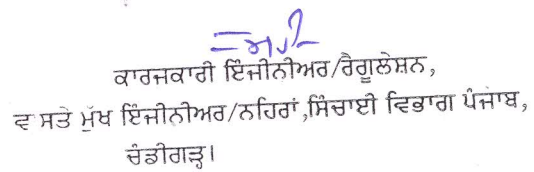 ਕਾਰਜਕਾਰੀ ਇੰਜੀਨੀਅਰ/ਰੈਗੂਲੇਸ਼ਨ,
ਵ ਸਤੇ ਮੁੱਖ ਇੰਜੀਨੀਅਰ/ਨਹਿਰਾਂ,ਸਿੰਚਾਈ ਵਿਭਾਗ ਪੰਜਾਬ,
ਚੰਡੀਗੜ੍ਹ।